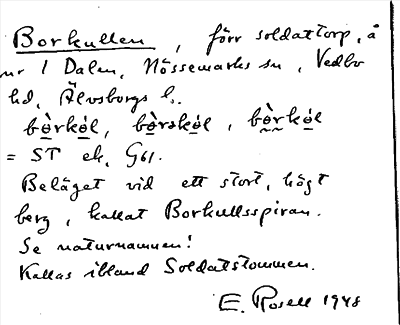 Borkullen, förr soldattorp, å
nr 1 Dalen, Nössemarks sn, Vedbo
hd, Älvsborgs l.
bò̱rkə̱l, bò̱rskə̱l, bò̱rkə̱l
= ST ek. G61.
Beläget vid ett stort, högt
berg, kallat Borkullsspiran.
Se naturnamnen!
Kallas ibland Soldatstommen.
E. Rosell 1948